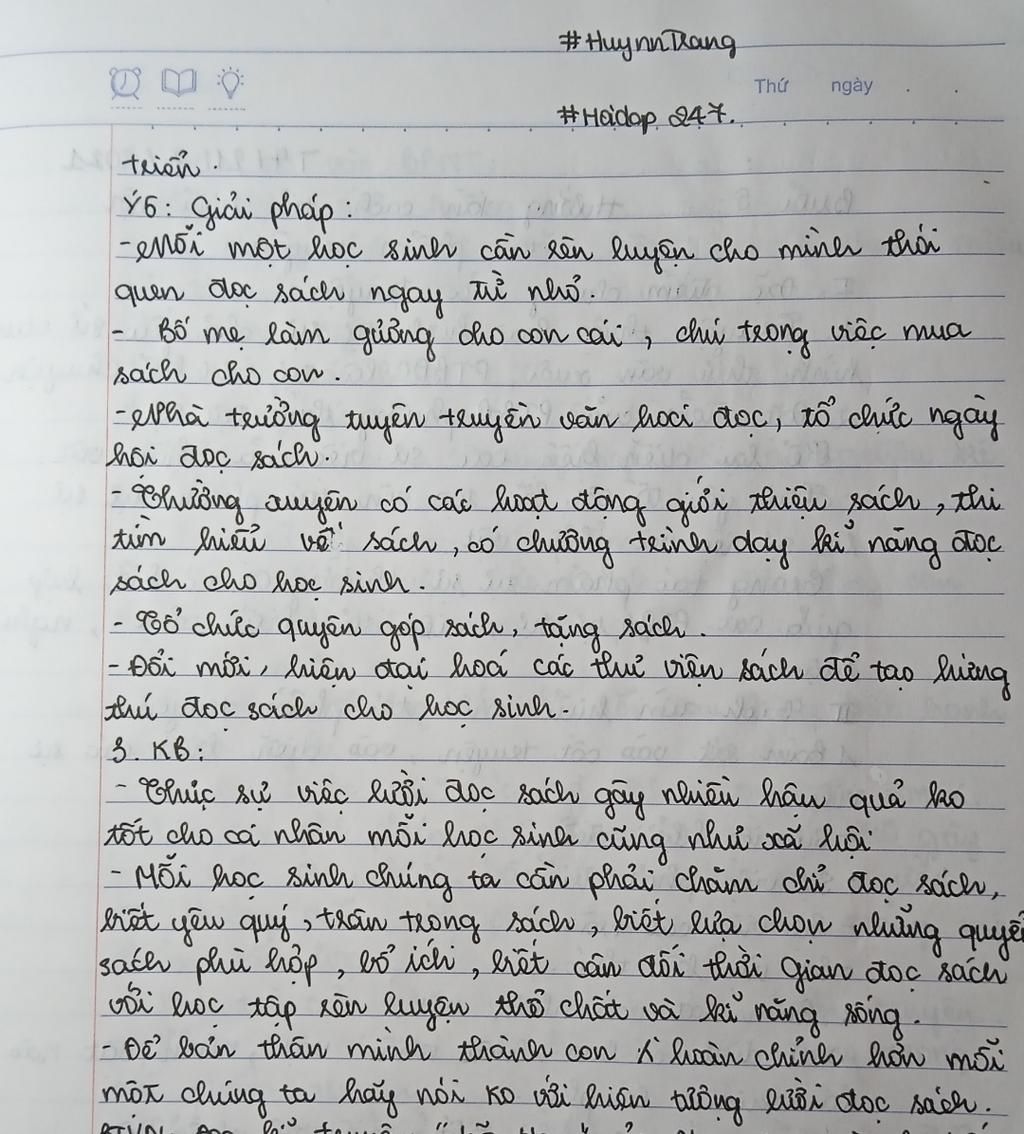 #HuynnTrang
Thứ ngày
#Hoidap 247.
triển.
Ý6: Giải pháp:
- Mỗi một học sinh cần rèn luyện cho mình thói
quen đọc sách ngay từ nhỏ.
- Bố mẹ làm gương cho con cái, chú trọng việc mua
sách cho con.
- Nhà trường tuyên truyền văn hoá đọc, tổ chức ngày
hội đọc sách.
- Thường xuyên có các hoạt động giới thiệu sách, thi
tìm hiểu về sách, có chương trình dạy kĩ năng đọc
sách cho học sinh.
- Tổ chức quyên góp sách, tặng sách.
- Đổi mới, hiện đại hoá các thư viện sách để tạo hứng
thú đọc sách cho học sinh.
3. KB:
- Thực sự việc lười đọc sách gây nhiều hậu quả ko
tốt cho cá nhân mỗi học sinh cũng như xã hội
- Mỗi học sinh chúng ta cần phải chăm chỉ đọc sách,
biết yêu quý, trân trọng sách, biết lựa chọn những quyển
sách phù hợp, bổ ích, biết cân đối thời gian đọc sách
với học tập rèn luyện thể chất và kĩ năng sống.
- Để bản thân mình thành con ng hoàn chỉnh hơn mỗi
một chúng ta hãy nói ko với hiện tượng lười đọc sách.